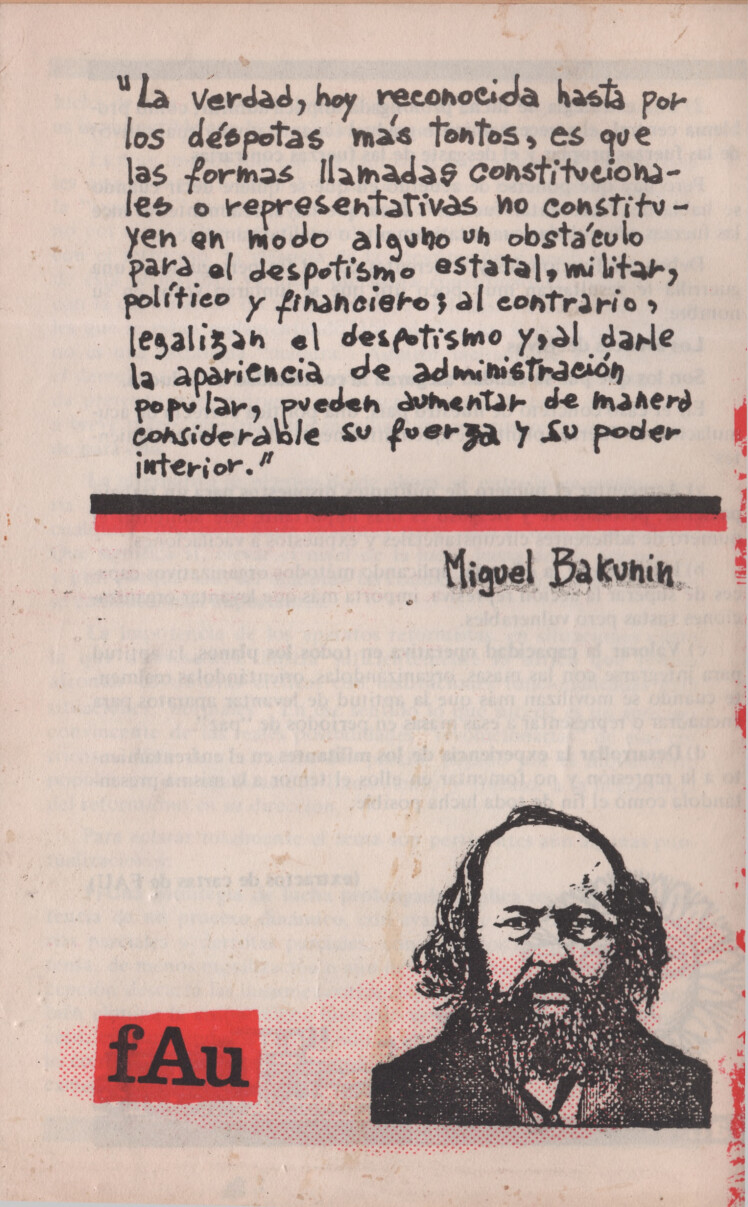 "La verdad, hoy reconocida hasta por
los déspotas más tontos, es que
las formas llamadas constituciona-
les o representativas no constitu-
yen en modo alguno un obstáculo
para el despotismo estatal, militar,
político y financiero; al contrario,
legalizan el despotismo y, al darle
la apariencia de administración
popular, pueden aumentar de manera
considerable su fuerza y su poder
interior."
Miguel Bakunin
fAu